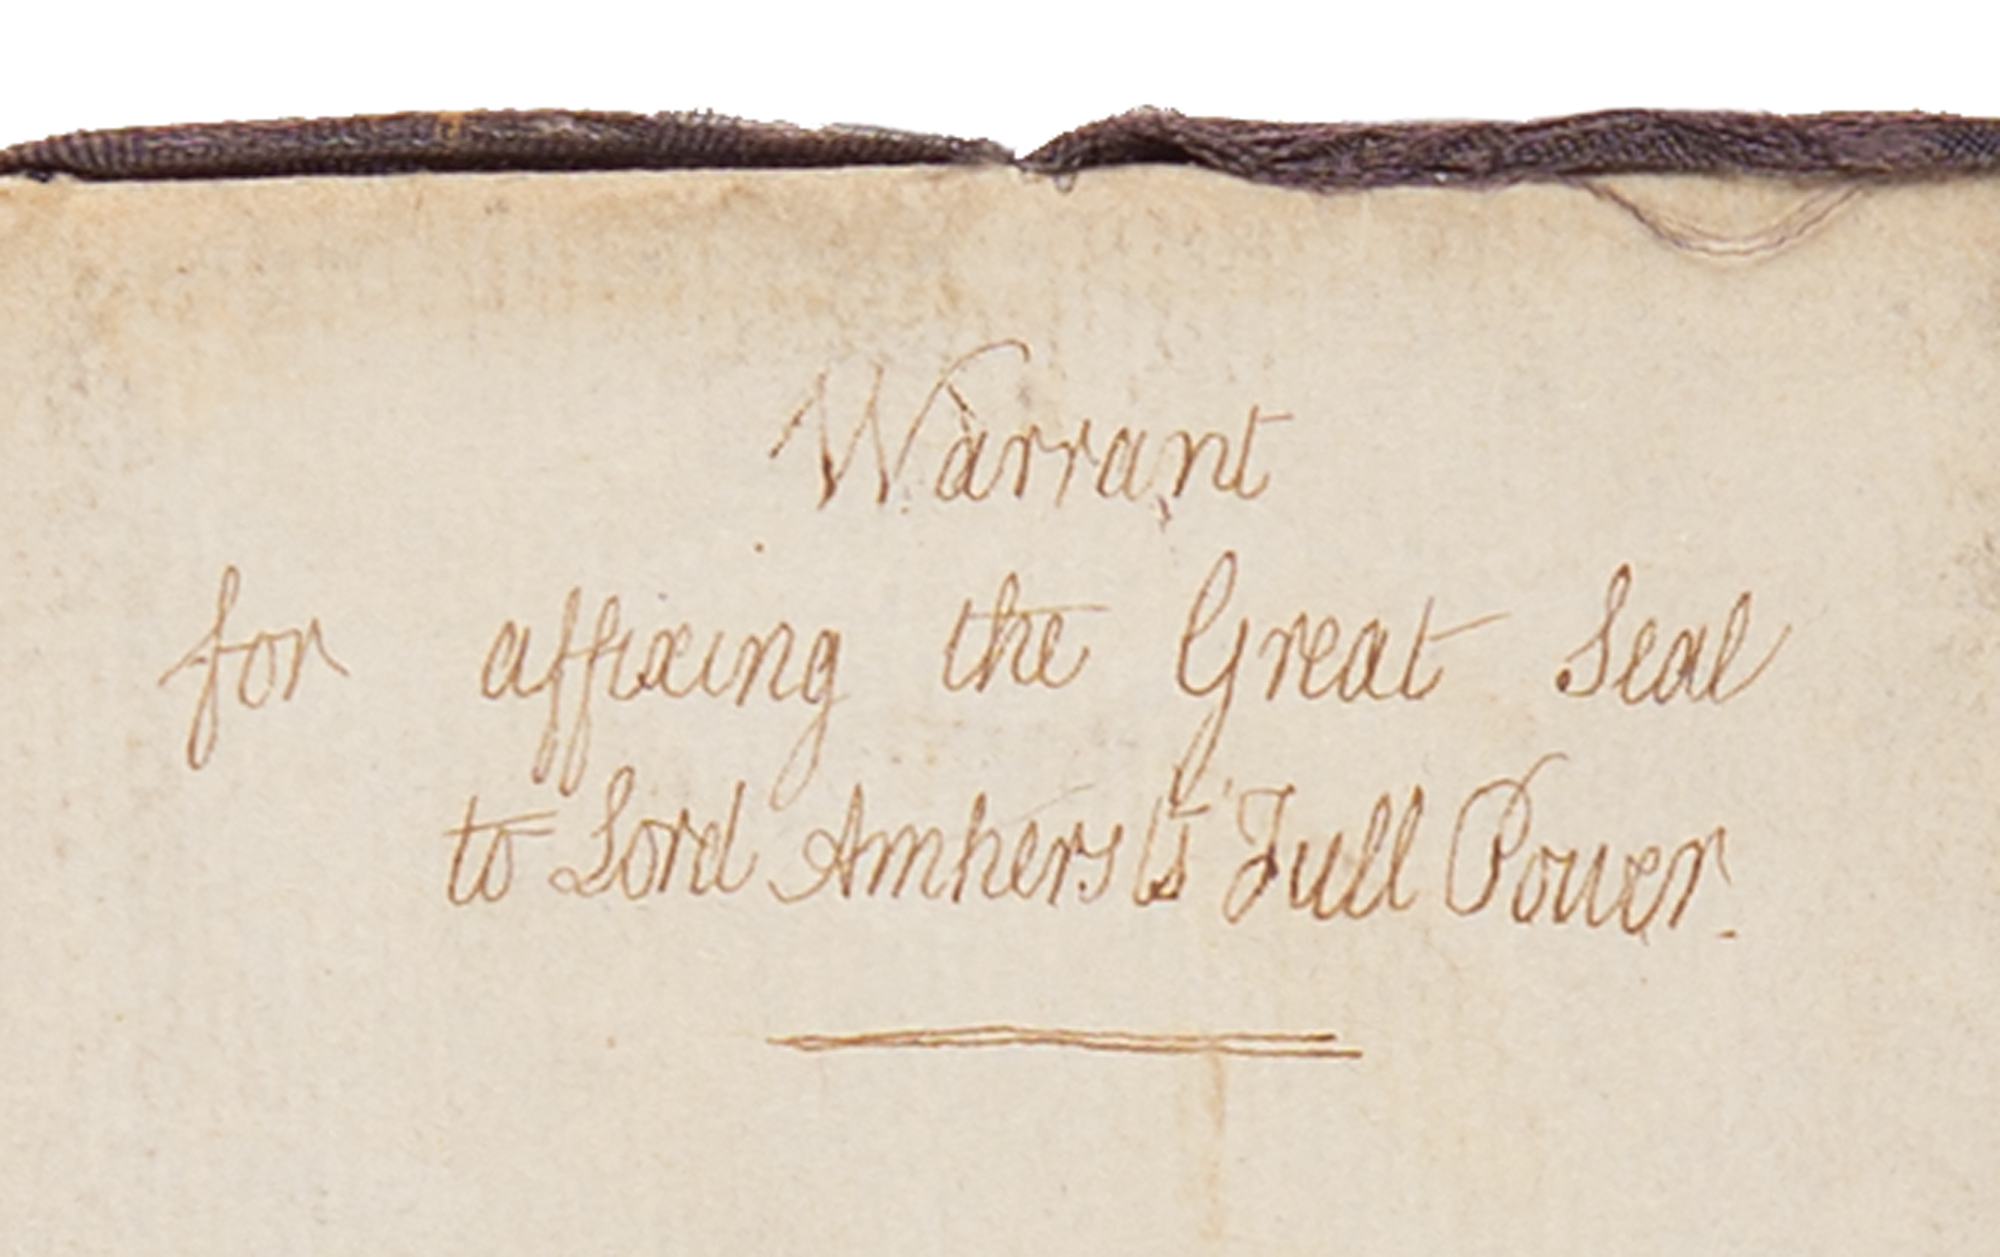 Warrant
for affixing the Great Seal
to Lord Amherst's Full Power.